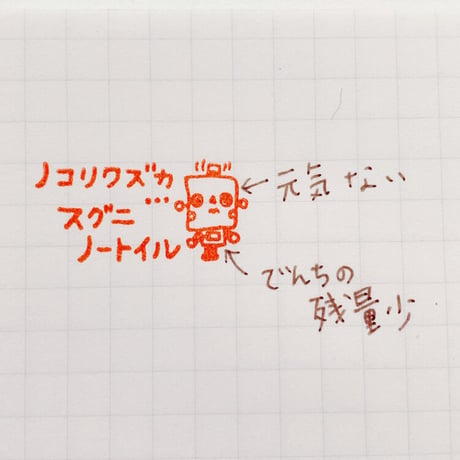 ノコリワズカ
…
スグニ
ノートイル
元気ない
でんちの
残量少